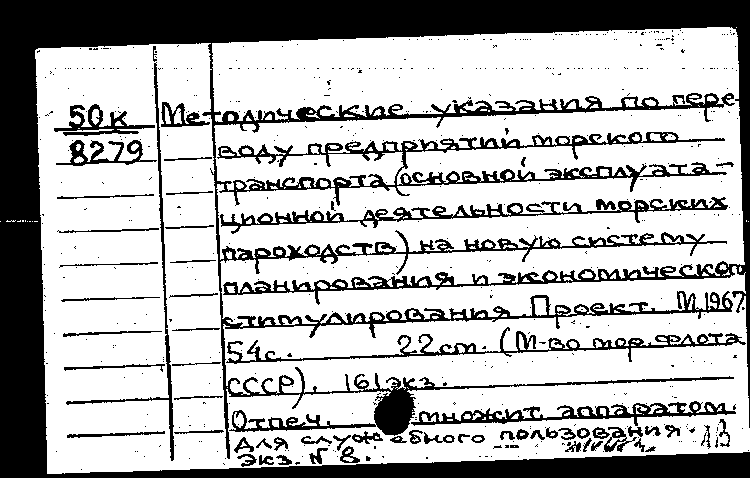 50к Методические указания по пере-
8279 воду предприятий морского
транспорта (основной эксплуата-
ционной деятельности морских
пароходств) на новую систему
планирования и экономического
стимулирования. Проект. М, 1967.
54 с. 22 см. (М-во мор. флота
СССР). 161 экз.
Отпеч. множит. аппаратом.
Для служебного пользования.
Экз. № 8.